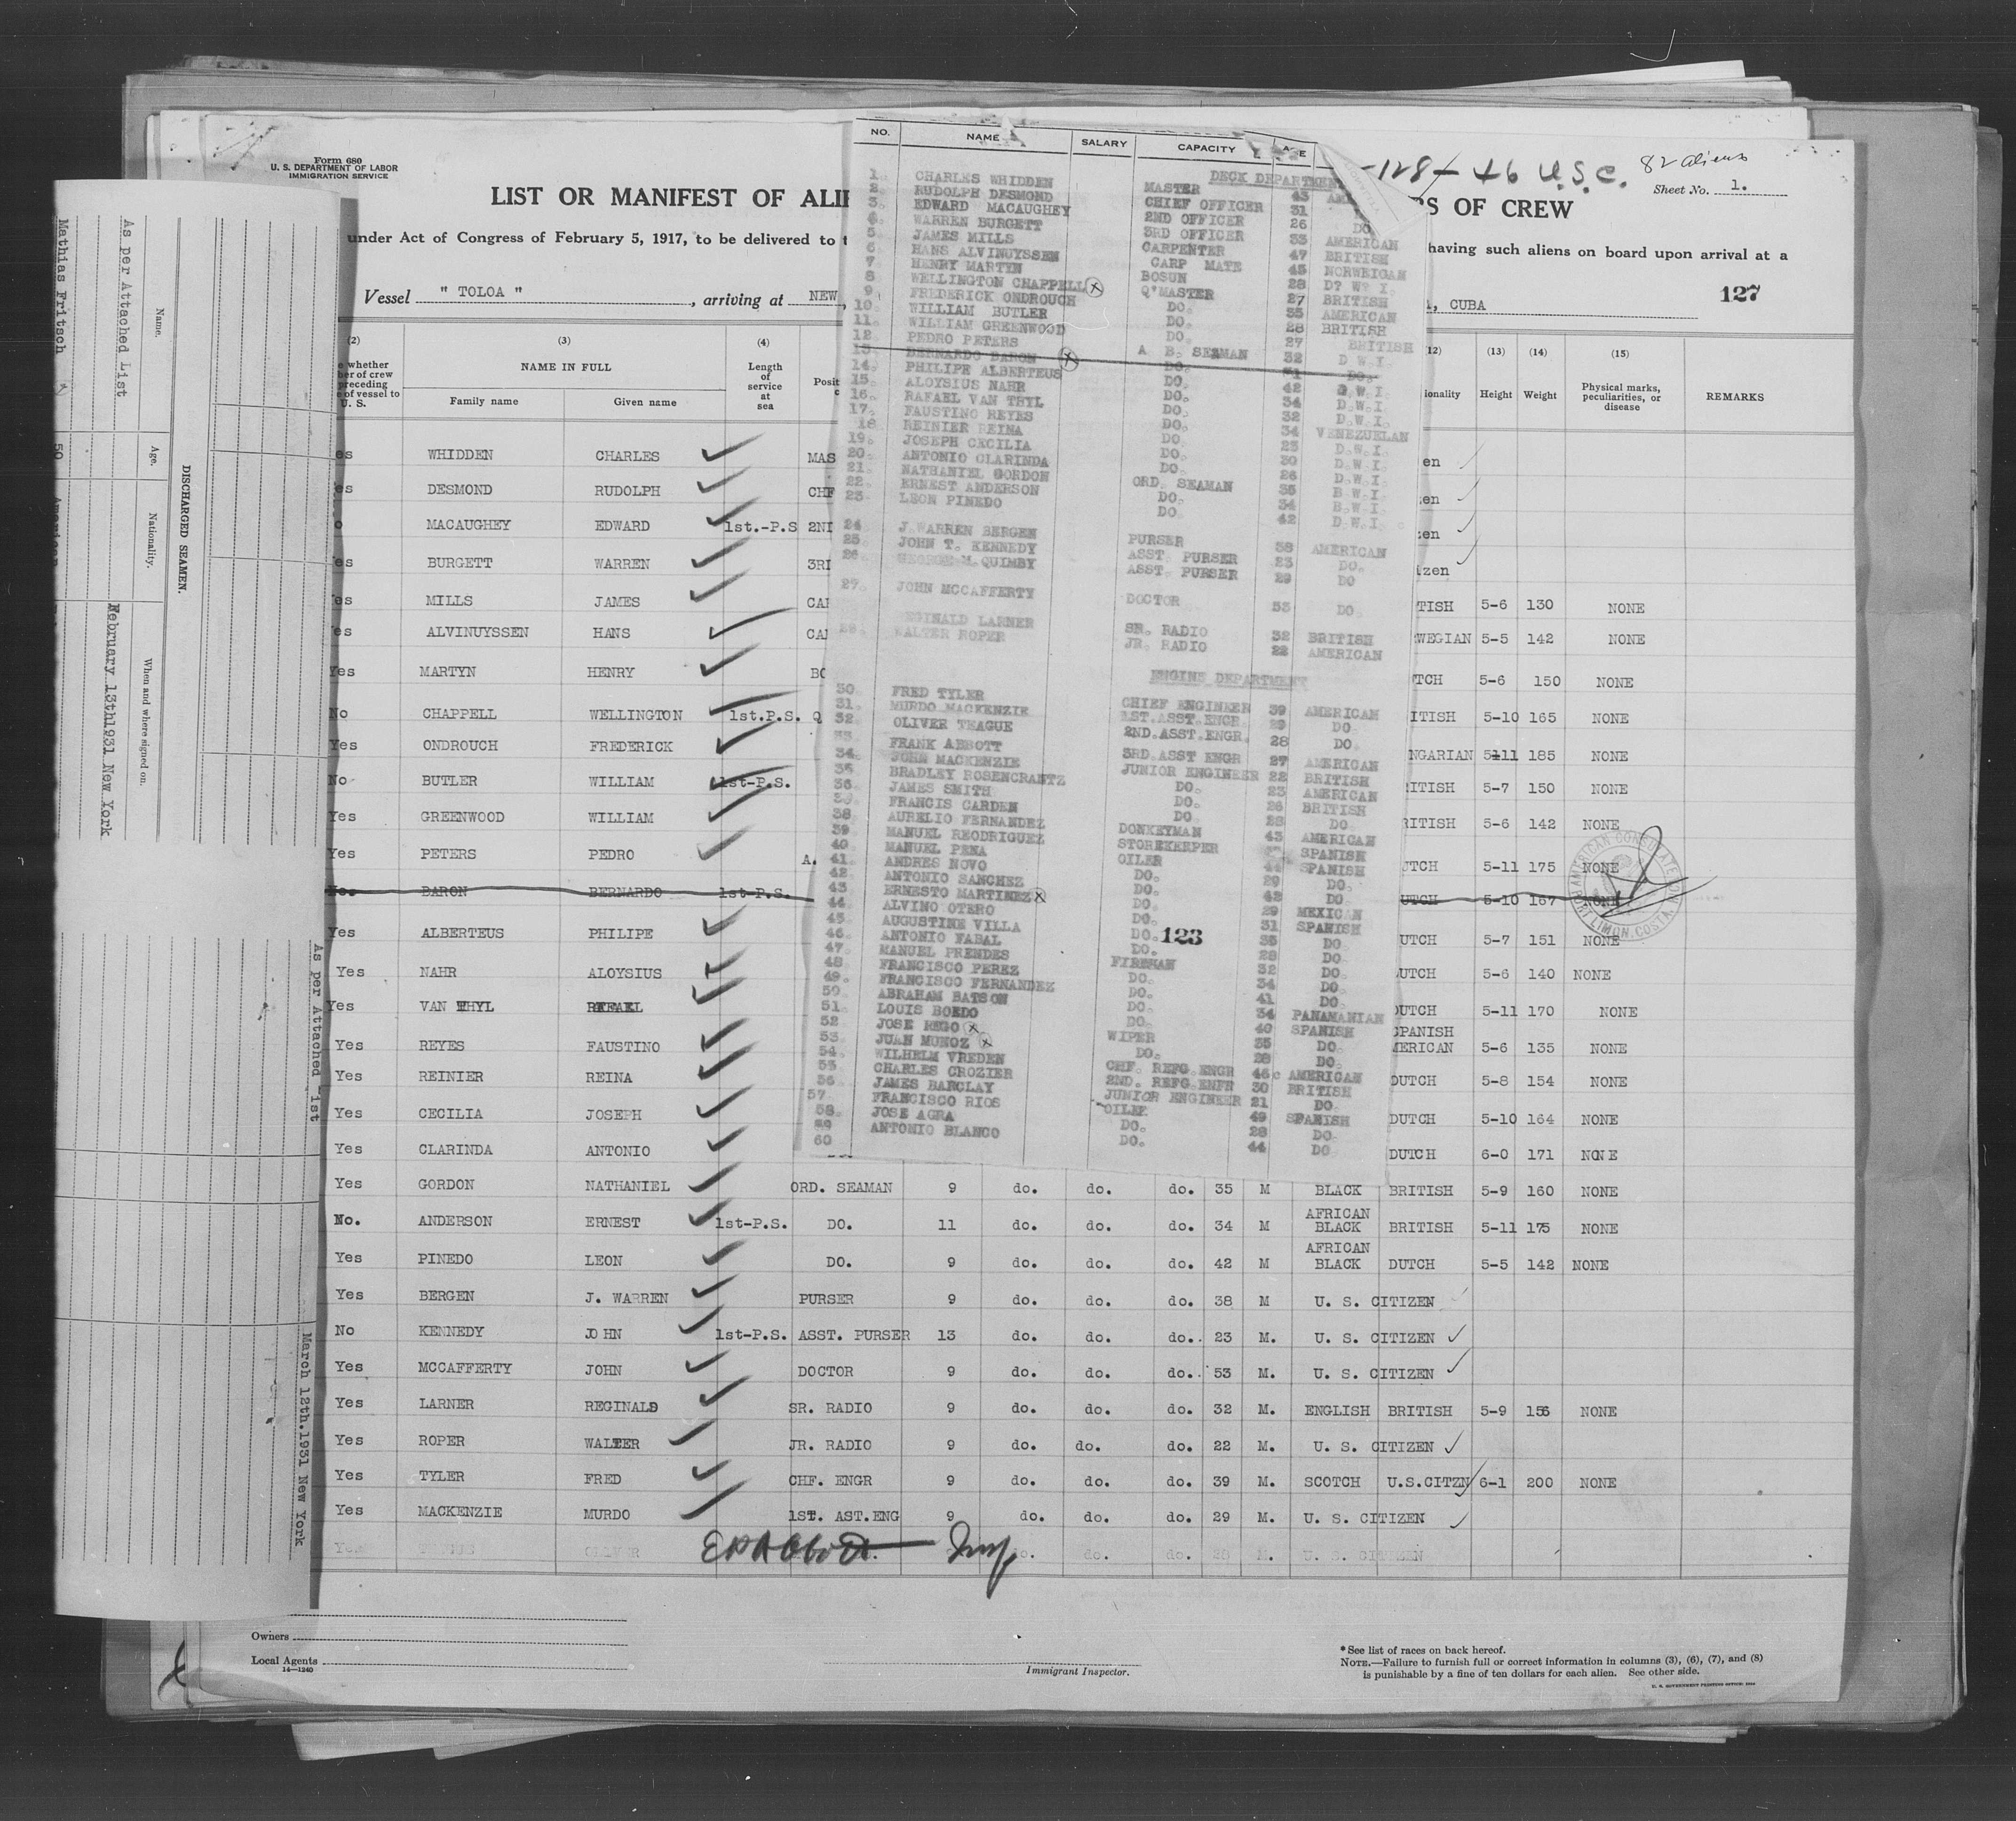 Form 680
U. S. DEPARTMENT OF LABOR
IMMIGRATION SERVICE
-128- +6 U.S.C. 82 aliens
Sheet No. 1.
LIST OR MANIFEST OF ALIE
RS OF CREW
under Act of Congress of February 5, 1917, to be delivered to t
having such aliens on board upon arrival at a
Vessel " TOLOA " , arriving at NEW
, CUBA
127
(2) (3) (4) (12) (13) (14) (15)
whether
er of crew
preceding
of vessel to
U. S.
NAME IN FULL
Family name Given name
Length
of
service
at
sea
Posit
ionality Height Weight
Physical marks,
peculiarities, or
disease
REMARKS
es WHIDDEN CHARLES MAS en
es DESMOND RUDOLPH CHF en
MACAUGHEY EDWARD 1st.-P.S 2ND en
es BURGETT WARREN 3RD izen
es MILLS JAMES CAR TISH 5-6 130 NONE
es ALVINUYSSEN HANS CAR WEGIAN 5-5 142 NONE
Yes MARTYN HENRY BO TCH 5-6 150 NONE
No CHAPPELL WELLINGTON 1st.P.S. Q ITISH 5-10 165 NONE
Yes ONDROUCH FREDERICK NGARIAN 5-11 185 NONE
No BUTLER WILLIAM 1st-P.S. ITISH 5-7 150 NONE
Yes GREENWOOD WILLIAM RITISH 5-6 142 NONE
Yes PETERS PEDRO A. UTCH 5-11 175 NONE
No. BARON BERNARDO 1st-P.S. UTCH 5-10 167 NONE
Yes ALBERTEUS PHILIPE UTCH 5-7 151 NONE
Yes NAHR ALOYSIUS UTCH 5-6 140 NONE
Yes VAN THYL RAFAEL DUTCH 5-11 170 NONE
Yes REYES FAUSTINO SPANISH MERICAN 5-6 135 NONE
Yes REINIER REINA DUTCH 5-8 154 NONE
Yes CECILIA JOSEPH DUTCH 5-10 164 NONE
Yes CLARINDA ANTONIO DUTCH 6-0 171 NONE
Yes GORDON NATHANIEL ORD. SEAMAN 9 do. do. do. 35 M BLACK BRITISH 5-9 160 NONE
No. ANDERSON ERNEST 1st-P.S. DO. 11 do. do. do. 34 M AFRICAN BLACK BRITISH 5-11 175 NONE
Yes PINEDO LEON DO. 9 do. do. do. 42 M AFRICAN BLACK DUTCH 5-5 142 NONE
Yes BERGEN J. WARREN PURSER 9 do. do. do. 38 M U. S. CITIZEN
No KENNEDY JOHN 1st-P.S. ASST. PURSER 13 do. do. do. 23 M. U. S. CITIZEN
Yes MCCAFFERTY JOHN DOCTOR 9 do. do. do. 53 M. U. S. CITIZEN
Yes LARNER REGINALD SR. RADIO 9 do. do. do. 32 M. ENGLISH BRITISH 5-9 156 NONE
Yes ROPER WALTER JR. RADIO 9 do. do. do. 22 M. U. S. CITIZEN
Yes TYLER FRED CHF. ENGR 9 do. do. do. 39 M. SCOTCH U.S.CITZN 6-1 200 NONE
Yes MACKENZIE MURDO 1ST. AST.ENG 9 do. do. do. 29 M. U. S. CITIZEN
OLIVER do. do. do. M. U. S. CITIZEN
Owners
Local Agents
14—1240
Immigrant Inspector.
*See list of races on back hereof.
NOTE.—Failure to furnish full or correct information in columns (3), (6), (7), and (8)
is punishable by a fine of ten dollars for each alien. See other side.
U. S. GOVERNMENT PRINTING OFFICE
AMERICAN CONSULATE
PORT LIMON, COSTA
NO. NAME SALARY CAPACITY AGE
DECK DEPARTMENT
1. CHARLES WHIDDEN MASTER 43 AM
2. RUDOLPH DESMOND CHIEF OFFICER 31
3. EDWARD MACAUGHEY 2ND OFFICER 26 DO
4. WARREN BURGETT 3RD OFFICER 33 AMERICAN
5. JAMES MILLS CARPENTER 47 BRITISH
6. HANS ALVINUYSSEN CARP MATE 45 NORWEIGAN
7. HENRY MARTYN BOSUN 28 D? W? I.
8 WELLINGTON CHAPPELL Q'MASTER 27 BRITISH
9. FREDERICK ONDROUCH DO. 35 AMERICAN
10. WILLIAM BUTLER DO. 28 BRITISH
11. WILLIAM GREENWOOD DO. 27 BRITISH
12. PEDRO PETERS A B. SEAMAN 32 D W.I.
13. BERNARDO BARON DO. 31 DO.
14. PHILIPE ALBERTEUS DO. 42 D.W.I.
15. ALOYSIUS NAHR DO. 34 D.W.I.
16. RAFAEL VAN THYL DO. 32 D.W.I.
17. FAUSTINO REYES DO. 34 VENEZUELAN
18 REINIER REINA DO. 23 D.W.I.
19. JOSEPH CECILIA DO. 30 D.W.I.
20. ANTONIO CLARINDA DO. 26 D.W.I.
21. NATHANIEL GORDON ORD. SEAMAN 35 B.W.I.
22. ERNEST ANDERSON DO. 34 B.W.I.
23. LEON PINEDO DO. 42 D.W.I.
24 J.WARREN BERGEN PURSER 38 AMERICAN
25. JOHN T. KENNEDY ASST. PURSER 23 DO.
26. GEORGE M.QUIMBY ASST. PURSER 29 DO
27. JOHN MCCAFFERTY DOCTOR 53 DO.
REGINALD LARNER SR. RADIO 32 BRITISH
28. WALTER ROPER JR. RADIO 22 AMERICAN
ENGINE DEPARTMENT
30. FRED TYLER CHIEF ENGINEER 39 AMERICAN
31. MURDO MACKENZIE 1ST.ASST.ENGR. 29 DO
32 OLIVER TEAGUE 2ND.ASST.ENGR. 28 DO.
33. FRANK ABBOTT 3RD.ASST ENGR 27 AMERICAN
34. JOHN MACKENZIE JUNIOR ENGINEER 22 BRITISH
35 BRADLEY ROSENCRANTZ DO. 23 AMERICAN
36 JAMES SMITH DO. 26 BRITISH
FRANCIS CARDEN DO 28 DO.
38 AURELIO FERNANDEZ DONKEYMAN 43 AMERICAN
39 MANUEL REODRIGUEZ STOREKEEPER SPANISH
40 MANUEL PENA OILER 44 SPANISH
41. ANDRES NOVO DO. 29 DO.
42. ANTONIO SANCHEZ DO. 42 DO
43. ERNESTO MARTINEZ DO. 29 MEXICAN
44 ALVINO OTERO DO. 31 SPANISH
45 AUGUSTINE VILLA DO. 35 DO
46. ANTONIO FABAL DO. 28 DO.
123
47. MANUEL PRENDES FIREMAN 32 DO.
48. FRANCISCO PEREZ DO. 34 DO.
49. FRANCISCO FERNANDEZ DO. 41 DO.
50. ABRAHAM BATSON DO. 34 PANAMANIAN
51. LOUIS BOEDO DO. 40 SPANISH
52. JOSE REGO WIPER 35 DO.
53. JUAN MUNOZ DO. 28 DO.
54. WILHELM VREDEN CHF. REFG.ENGR 46 AMERICAN
55. CHARLES CROZIER 2ND. REFG.ENFR 30 BRITISH
56 JAMES BARCLAY JUNIOR ENGINEER 21 DO.
57. FRANCISCO RIOS OILER 49 SPANISH
58. JOSE AGRA DO. 28 DO
59 ANTONIO BLANCO DO. 44 DO
60
DISCHARGED SEAMEN.
Name. Age. Nationality. When and where signed on.
As per Attached List February 13th1931 New York
Mathias Fritsch 50 American
As per Attached List March 12th.1931 New York